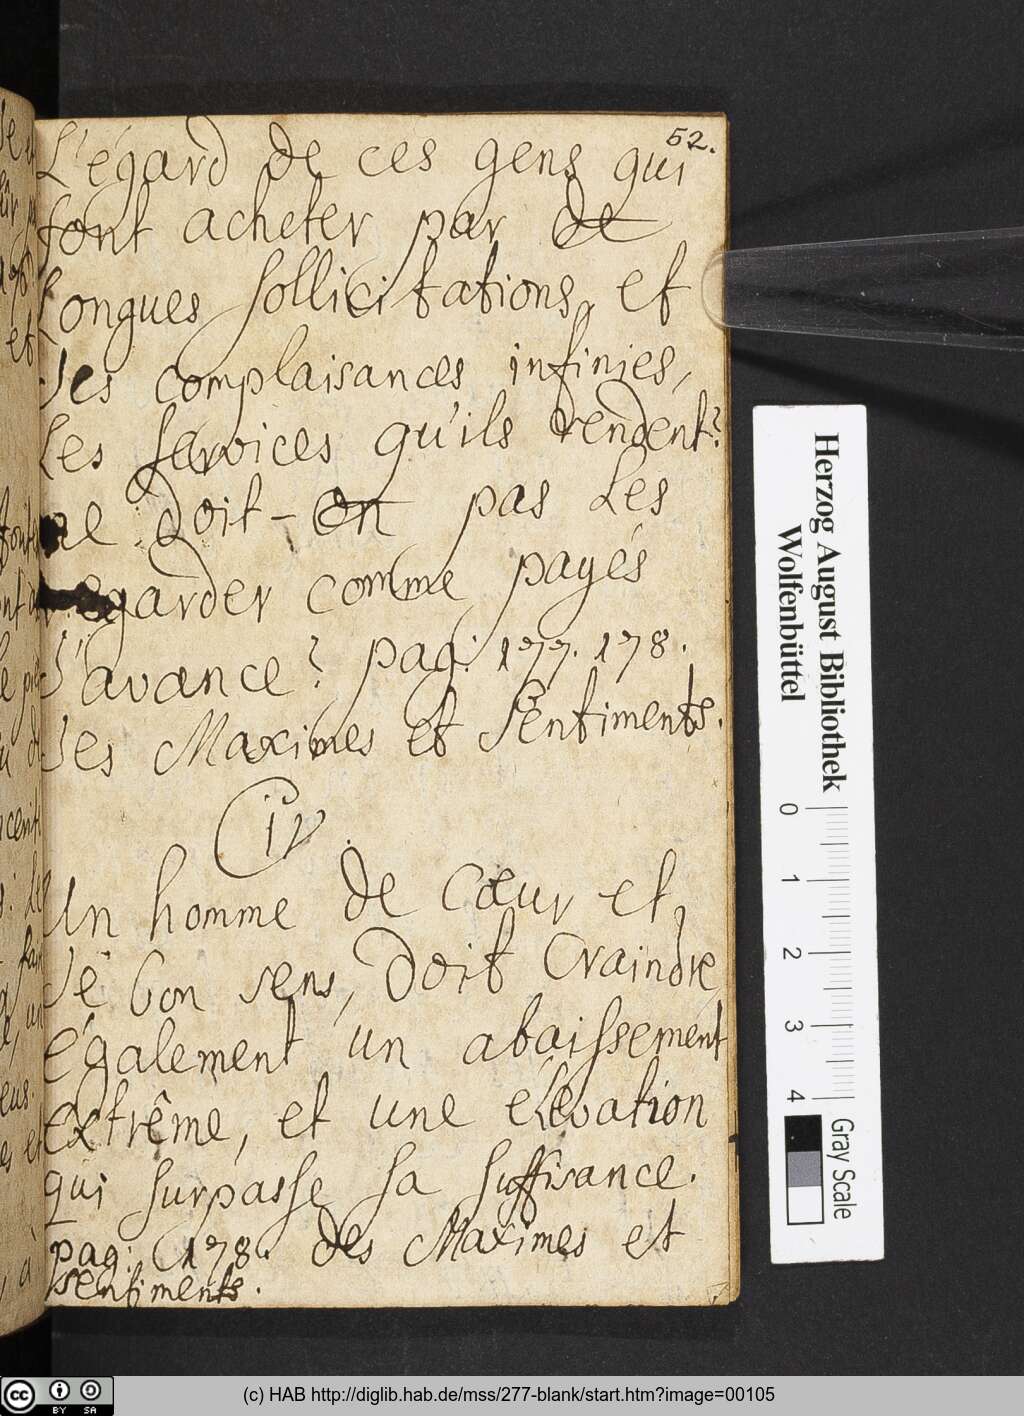 52.
L'égard de ces gens qui
font acheter par de
Longues sollicitations, et
des complaisances infinies,
Les services qu'ils rendent?
ne doit-on pas Les
regarder comme payés
d'avance? pag: 177. 178.
des Maximes et Sentiments.
Civ.
Un homme de Cœur et,
de bon sens, doit Craindre,
également un abaissement
extrême, et une élévation
qui surpasse sa suffisance.
pag: 178. des Maximes et
sentiments.
Herzog August Bibliothek
Wolfenbüttel
0 1 2 3 4
Gray Scale
cc BY SA
(c) HAB http://diglib.hab.de/mss/277-blank/start.htm?image=00105